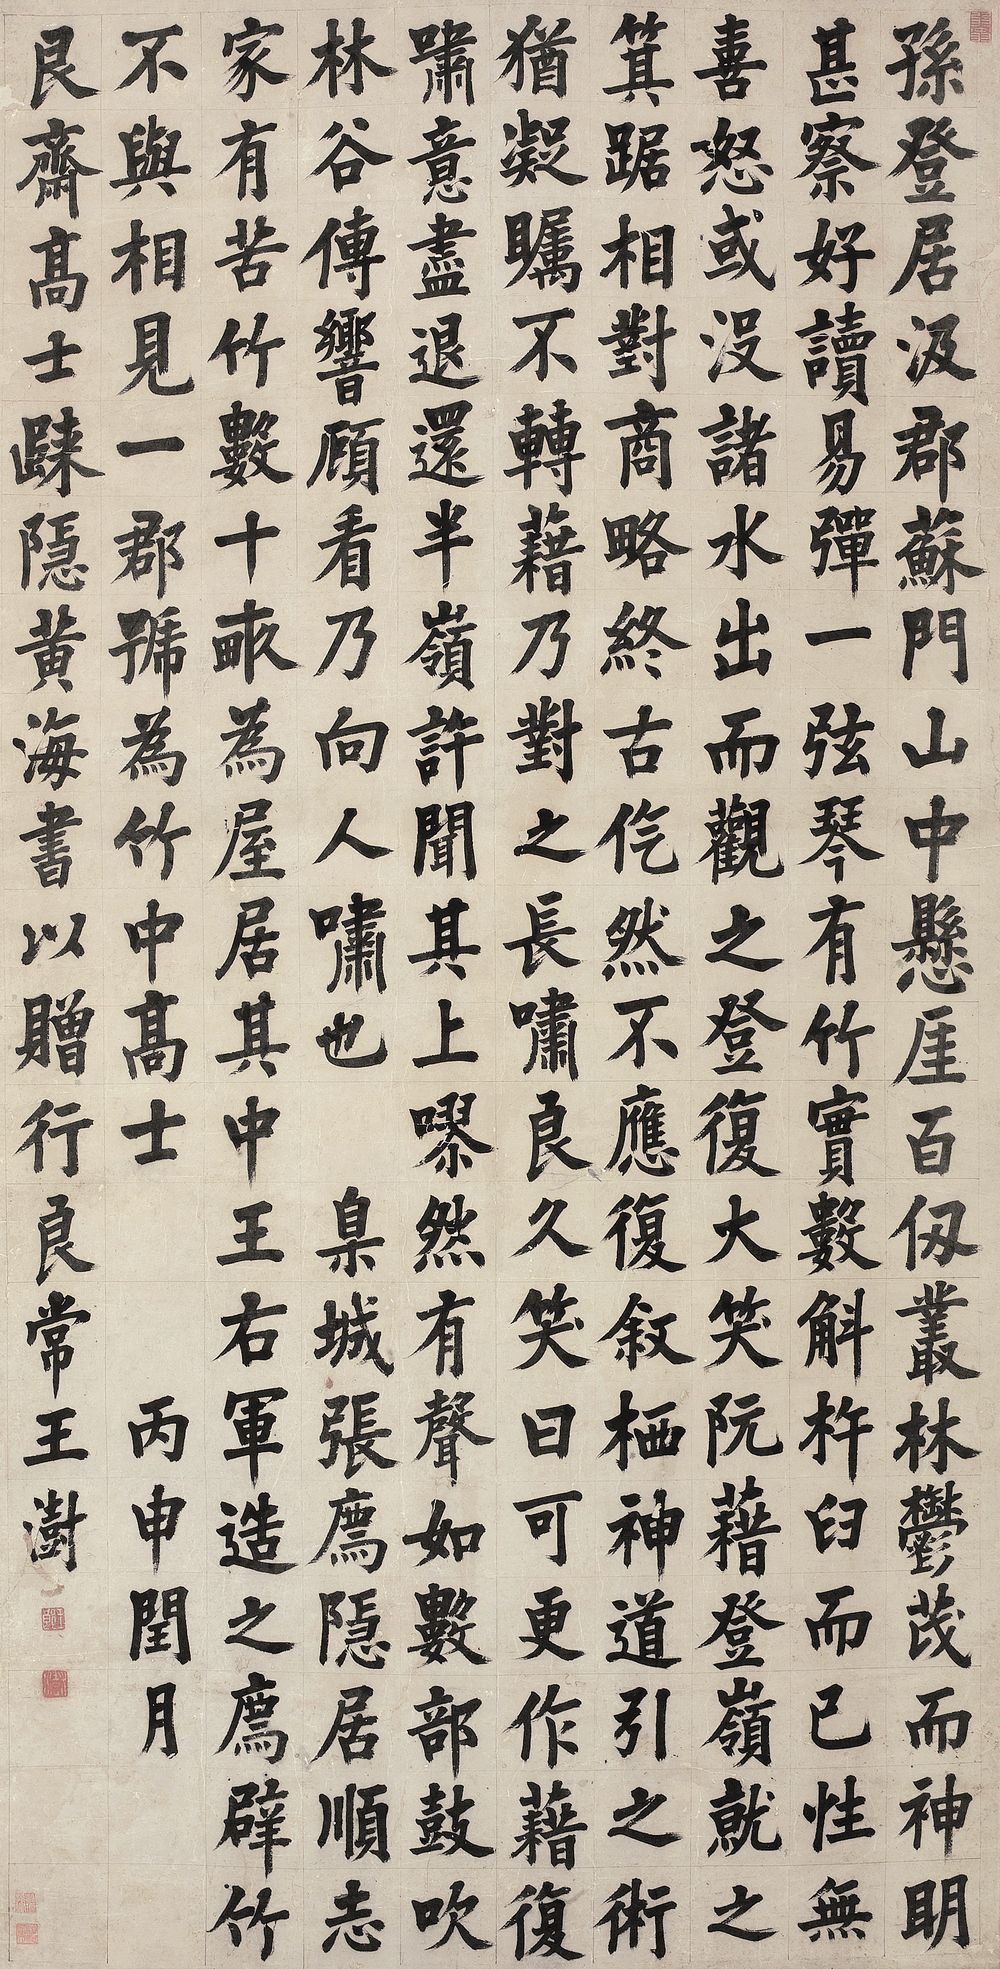 孫登居汲郡蘇門山中懸厓百仭叢林鬱茂而神明
甚察好讀易彈一弦琴有竹實數斛杵臼而已性無
喜怒或沒諸水出而觀之登復大笑阮藉登嶺就之
箕踞相對商略終古仡然不應復叙栖神道引之術
猶凝矚不轉藉乃對之長嘯良久笑曰可更作藉復
嘯意盡退還半嶺許聞其上嘐然有聲如數部鼓吹
林谷傳響顧看乃向人嘯也 臯城張廌隱居順志
家有苦竹數十畝為屋居其中王右軍造之廌辟竹
不與相見一郡號為竹中高士 丙申閏月
艮齋高士踈隱黃海書以贈行良常王澍